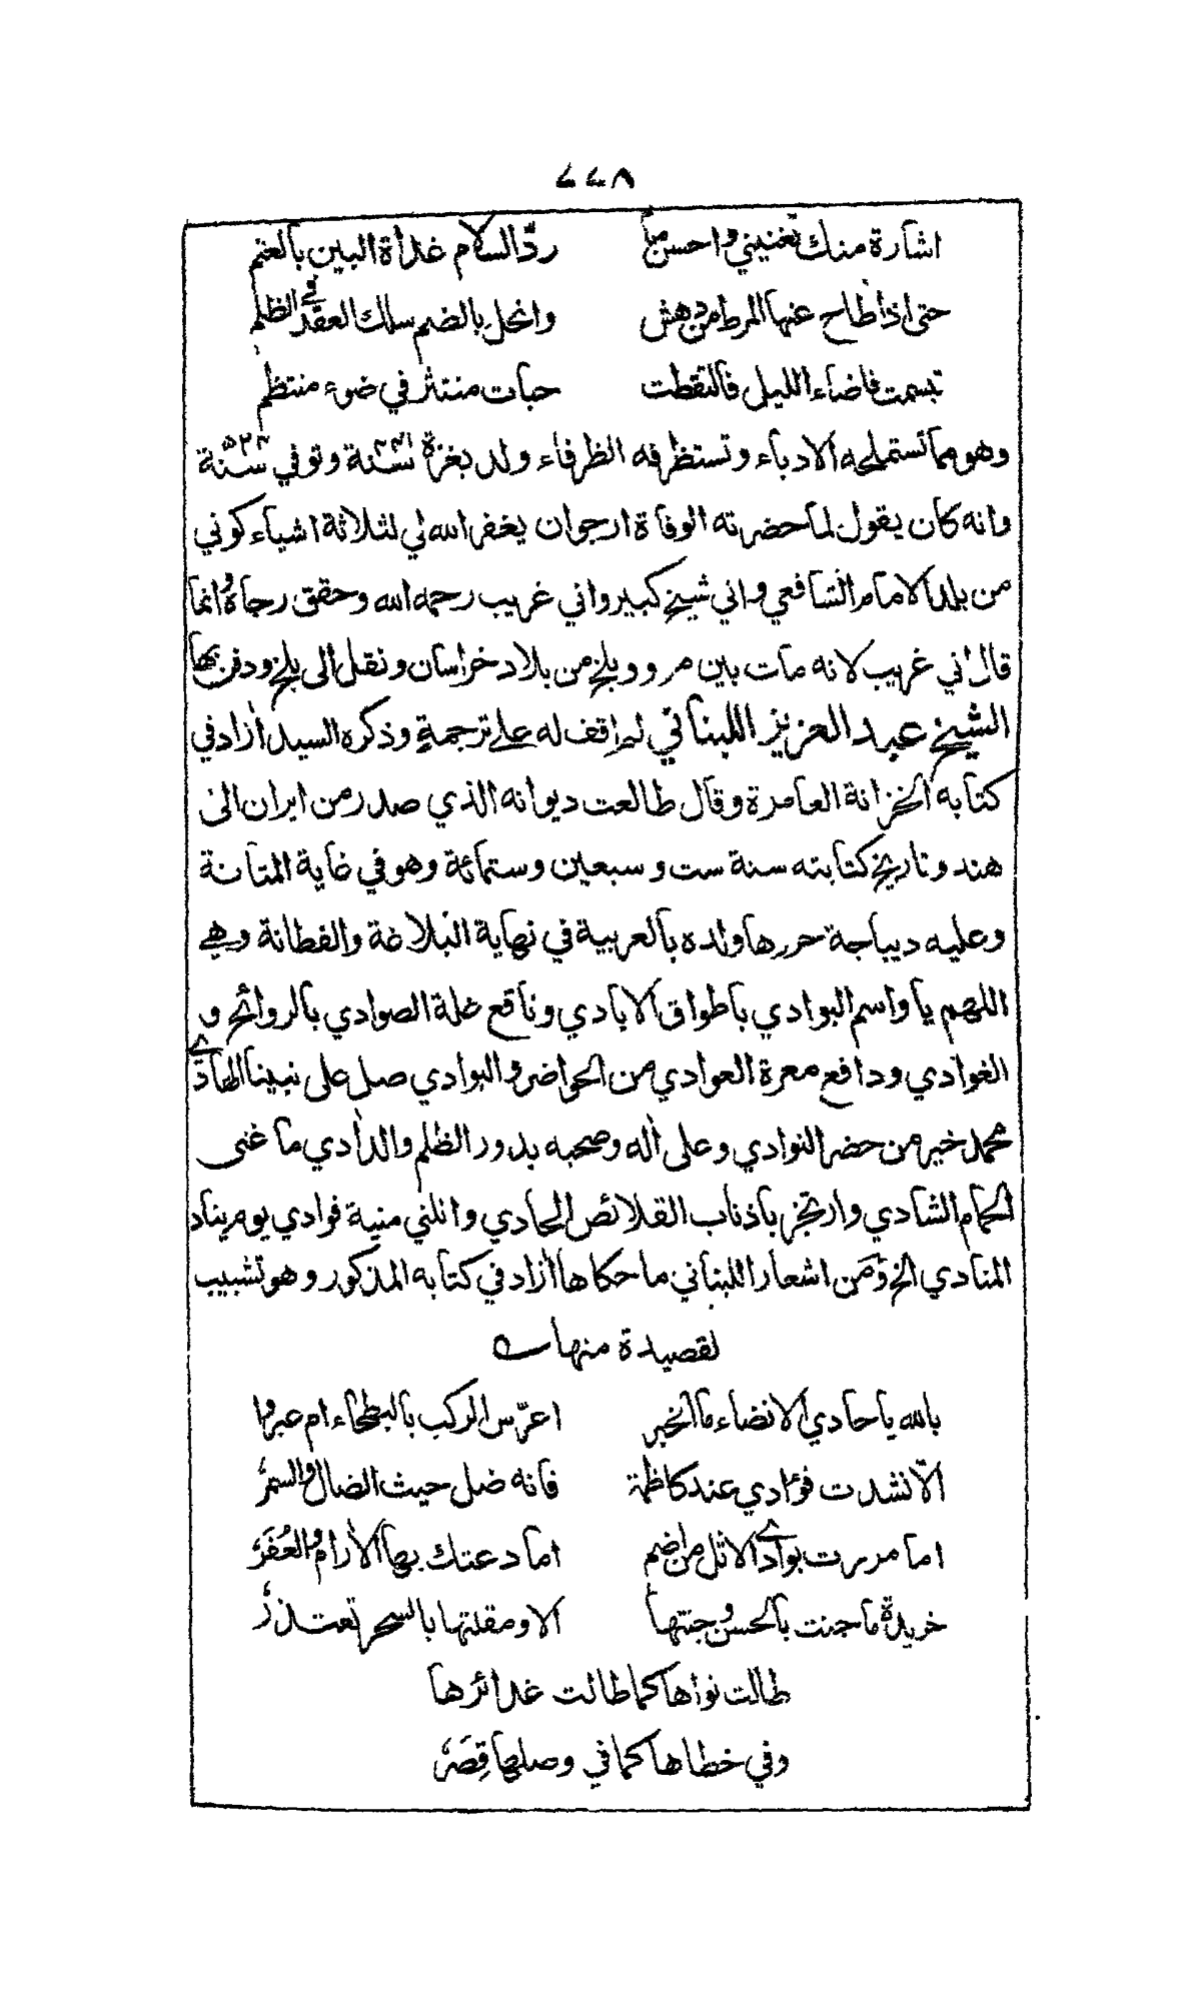 ٧٧٨
اشارة منك تغنيني واحسن ما ردّ السلام غداة البين بالعنم
حتى اذا طاح عنها المرط من دهش وانحل بالضم سلك العقد في الظلم
تبسمت فاضاء الليل فالتقطت حبات منتثر في ضوء منتظم
وهو مما تستملحه الادباء وتستظرفه الظرفاء ولد بغزة سنة ٤٤١ وتوفي سنة ٥٢٣
وانه كان يقول لما حضرته الوفاة ارجوان يغفر الله لي لثلاثة اشياء كوني
من بلد الامام الشافعي واني شيخ كبير واني غريب رحمه الله وحقق رجاءه وانما
قال اني غريب لانه مات بين مرو وبلخ من بلاد خراسان ونقل الى بلخ ودفن بها
الشيخ عبد العزيز اللبناني لم اقف له على ترجمة وذكره السيد ازاد في
كتابه الخزانة العامرة وقال طالعت ديوانه الذي صدر من ايران الى
هند وتاريخ كتابته سنة ست وسبعين وستمائة وهو في غاية المتانة
وعليه ديباجة حررها ولده بالعربية في نهاية البلاغة والفطانة وهي
اللهم يا واسم البوادي باطواق الايادي وناقع غلة الصوادي بالروائح و
الغوادي ودافع معرة العوادي من الحواضر والبوادي صل على نبينا الهادي
محمد خير من حضر النوادي وعلى اٰله وصحبه بدور الظلم والدأدي ما غنى
الحمام الشادي وارتجز باذناب القلائص الحادي وانلني منية فوادي يوم يناد
المنادي الخ ومن اشعار اللبناني ما حكاها اٰزاد في كتابه المذكور وهو تشبيب
لقصيدة منها
بالله يا حادي الانضاء ما الخبر اعرّس الركب بالبطحاء ام عبروا
الّا نشدت فؤادي عند كاظمة فانه ضل حيث الضال والسمر
اما مررت بوادي الاثل من اضم اما دعتك بها الاٰرام والعُفَر
خريدة ما جنت بالحسن وجنتها الا ومقلتها بالسحر تعتذر
طالت نواها كما طالت غدائرها
وفي خطاها كما في وصلها قِصَر